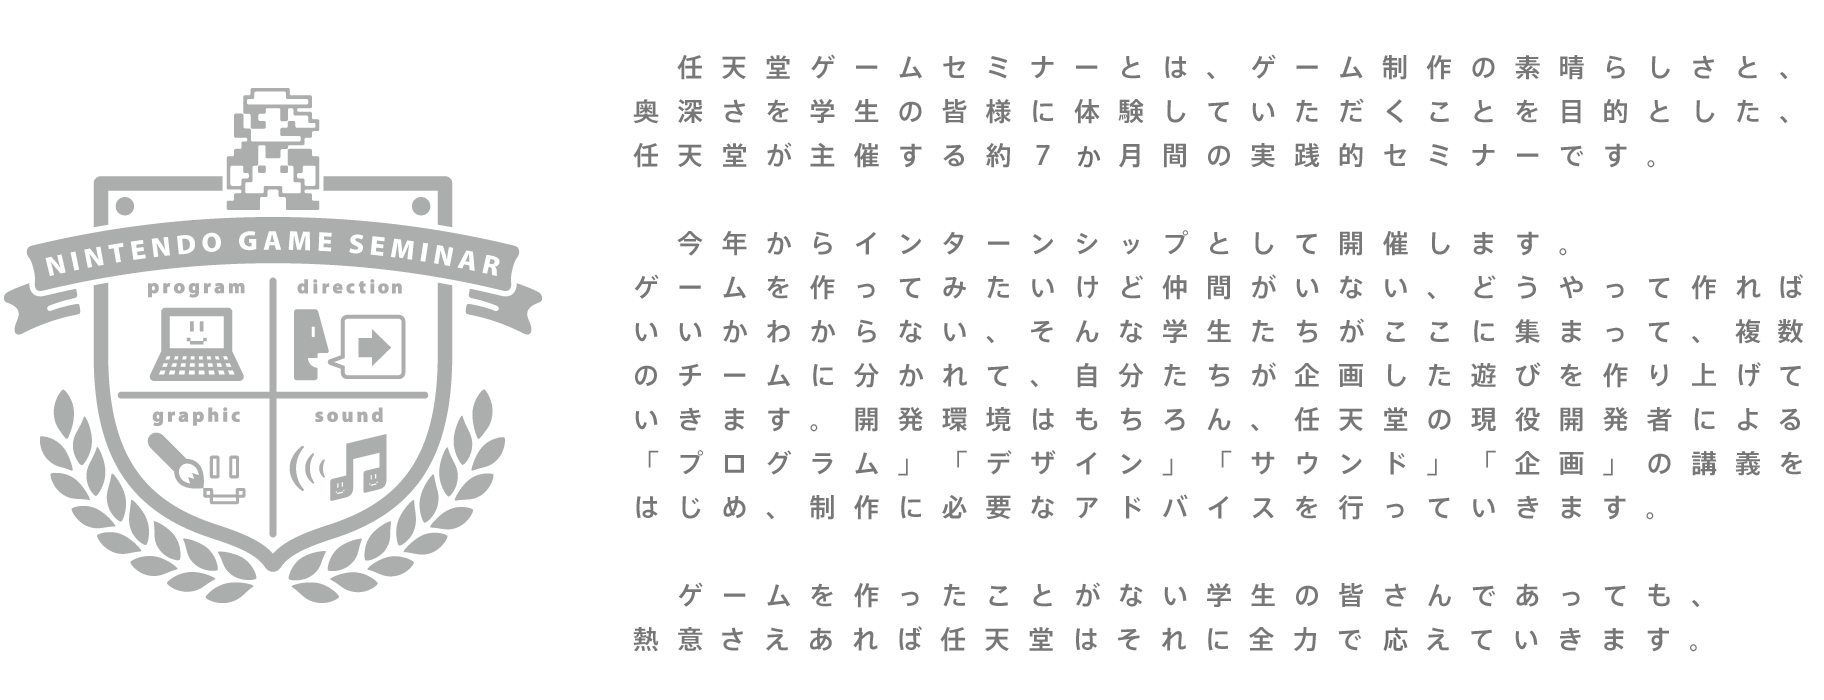 NINTENDO GAME SEMINAR
program
direction
graphic
sound
任天堂ゲームセミナーとは、ゲーム制作の素晴らしさと、
奥深さを学生の皆様に体験していただくことを目的とした、
任天堂が主催する約７か月間の実践的セミナーです。
今年からインターンシップとして開催します。
ゲームを作ってみたいけど仲間がいない、どうやって作れば
いいかわからない、そんな学生たちがここに集まって、複数
のチームに分かれて、自分たちが企画した遊びを作り上げて
いきます。開発環境はもちろん、任天堂の現役開発者による
「プログラム」「デザイン」「サウンド」「企画」の講義を
はじめ、制作に必要なアドバイスを行っていきます。
ゲームを作ったことがない学生の皆さんであっても、
熱意さえあれば任天堂はそれに全力で応えていきます。